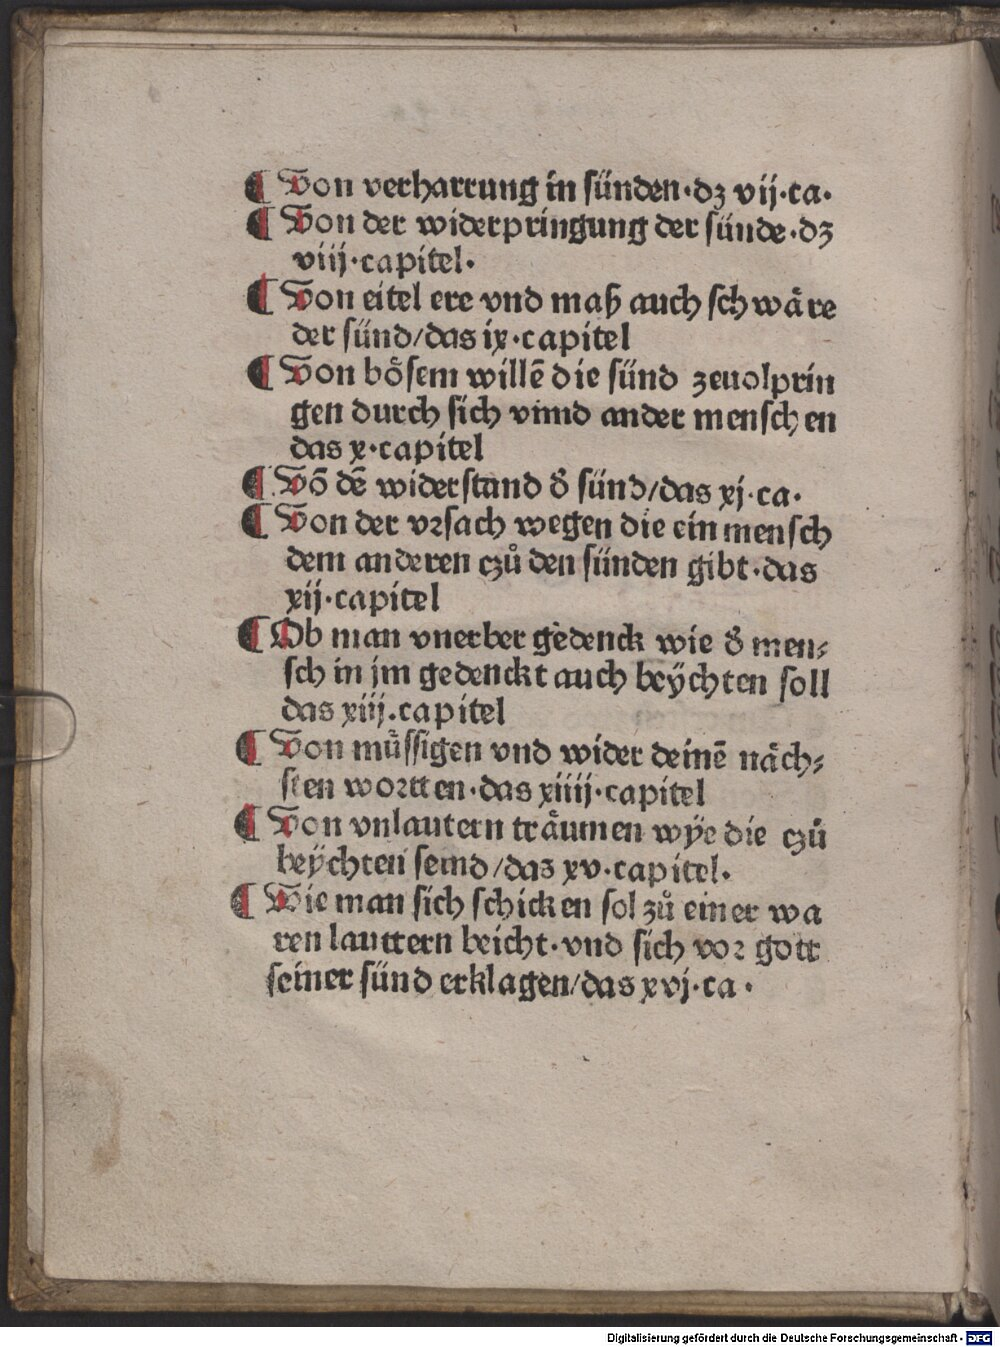 ¶ Von verharrung in sünden·dʒ vij·ca·
¶ Von der widerpringung der sünde·dʒ
viij·capitel·
¶ Von eitel ere vnd maß auch schwäre
der sünd/das ix·capitel
¶ Von bösem willē die sünd zeuolprin
gen durch sich vnnd ander menschen
das x·capitel
¶ Vō dē widerstand d̕ sünd/das xj·ca·
¶ Von der vrsach wegen die ein mensch
dem anderen czů den sünden gibt·das
xij·capitel
¶ Ob man vnerber gedenck wie d̕ men⸗
sch in jm gedenckt auch beÿchten soll
das xiij·capitel
¶ Von müssigen vnd wider deinē näch⸗
sten wortten·das xiiij·capitel
¶ Von vnlautern träumen wÿe die czů
beÿchten seind/das xv·capitel·
¶ Wie man sich schicken sol zů einer wa
ren lauttern beicht·vnd sich vor gott
seiner sünd erklagen/das xvj·ca·
Digitalisierung gefördert durch die Deutsche Forschungsgemeinschaft - DFG